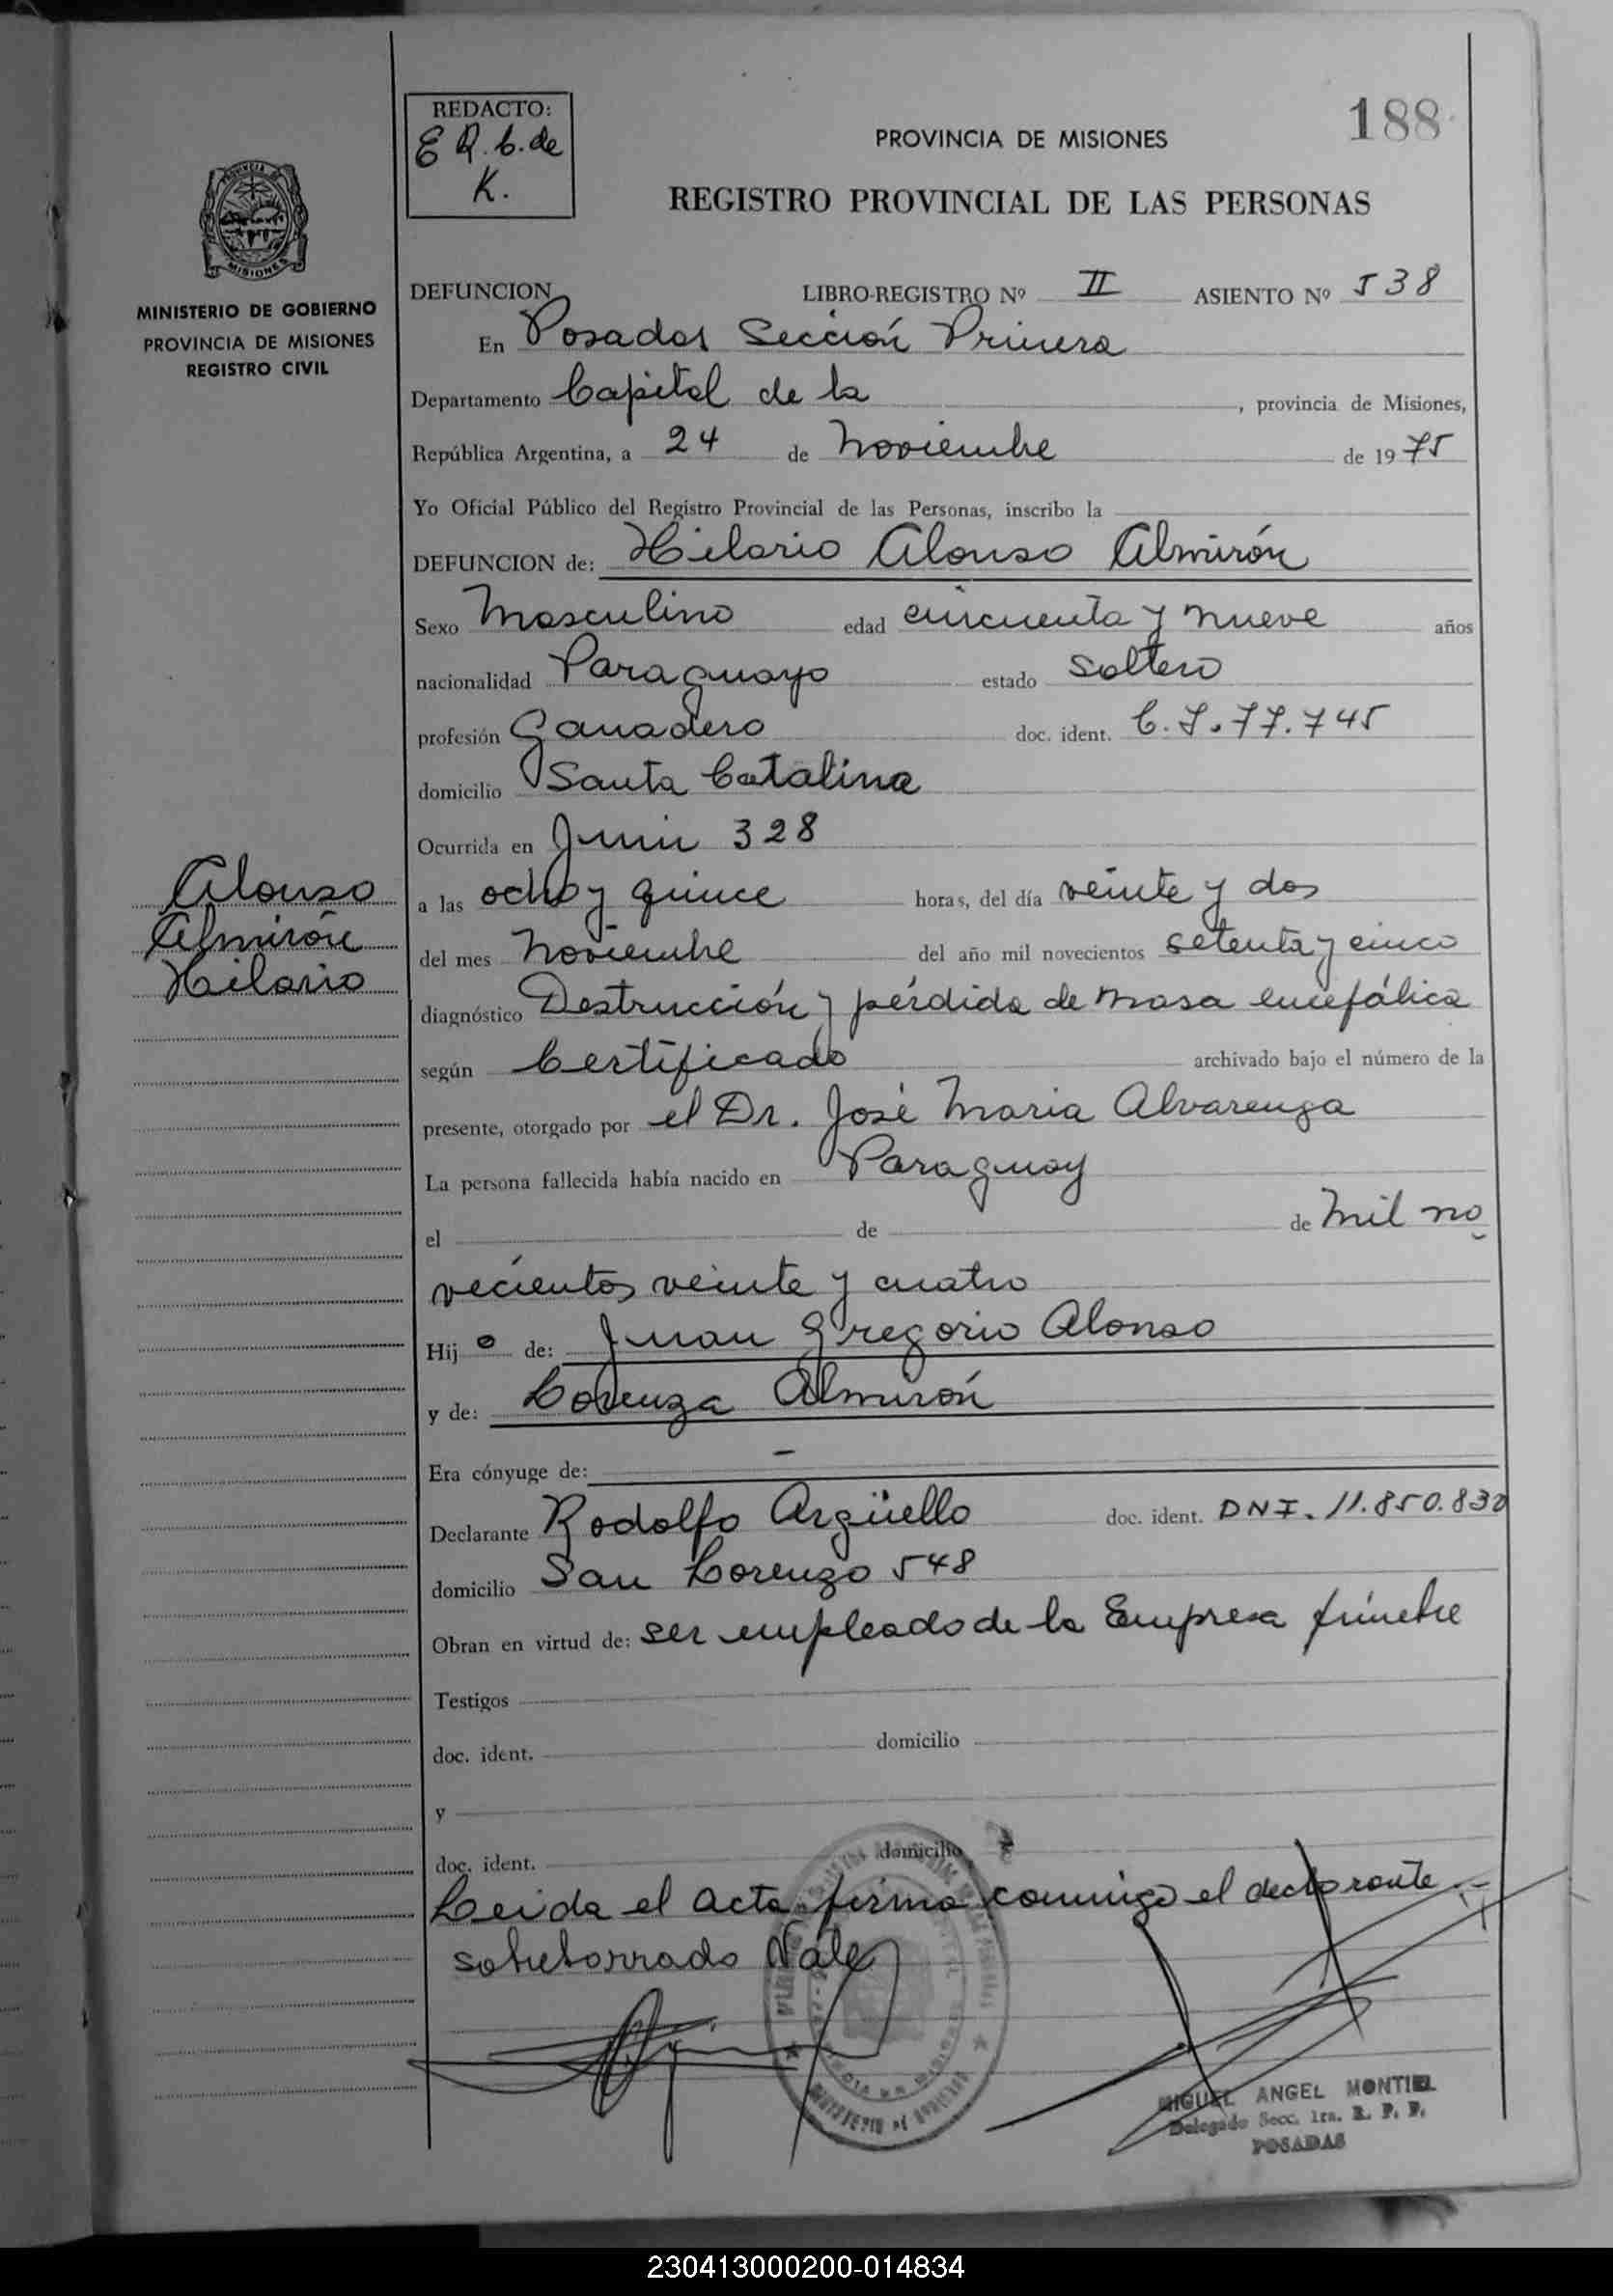 188
REDACTO:
E R. b. de
K.
PROVINCIA DE MISIONES
REGISTRO PROVINCIAL DE LAS PERSONAS
MISIONES
MINISTERIO DE GOBIERNO
PROVINCIA DE MISIONES
REGISTRO CIVIL
DEFUNCION LIBRO-REGISTRO Nº II ASIENTO Nº 538
En Posadas Sección Primera
Departamento Capital de la , provincia de Misiones,
República Argentina, a 24 de Noviembre de 1975
Yo Oficial Público del Registro Provincial de las Personas, inscribo la
DEFUNCION de: Hilario Alonso Almirón
Sexo Masculino edad cincuenta y nueve años
nacionalidad Paraguayo estado Soltero
profesión Ganadero doc. ident. C.I. 77.745
domicilio Santa Catalina
Ocurrida en Junin 328
a las ocho y quince horas, del día veinte y dos
del mes Noviembre del año mil novecientos setenta y cinco
diagnóstico Destrucción y pérdida de masa encefálica
según Certificado archivado bajo el número de la
presente, otorgado por el Dr. José Maria Alvarenga
La persona fallecida había nacido en Paraguay
el de de mil no
vecientos veinte y cuatro
Hij o de: Juan Gregorio Alonso
y de: Lorenza Almirón
Era cónyuge de: -
Declarante Rodolfo Argüello doc. ident. DNI. 11.850.832
domicilio San Lorenzo 548
Obran en virtud de: ser empleado de la Empresa fúnebre
Testigos
doc. ident. domicilio
y
doc. ident. domicilio
Leida el acta firma conmigo el declarante.-
sobreborrado Vale
Alonso
Almirón
Hilario
MIGUEL ANGEL MONTIEL
Delegado Secc. 1ra. R. P. P.
POSADAS
230413000200-014834